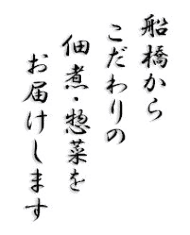 船橋から
こだわりの
佃煮・惣菜を
お届けします